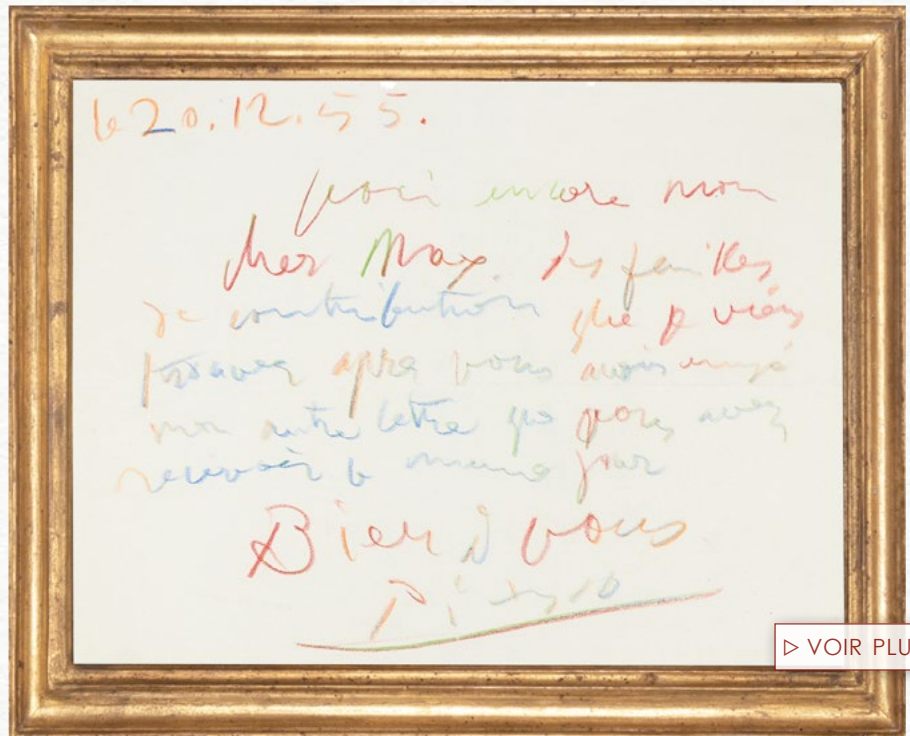 le 20.12.55.
Voici encore mon
cher Max. des feuilles
de contribution que je viens
trouver apres vous avoir envoyé
mon autre lettre que vous avez
recevoir le meme jour
Bien à vous
Picasso
▷ VOIR PLU